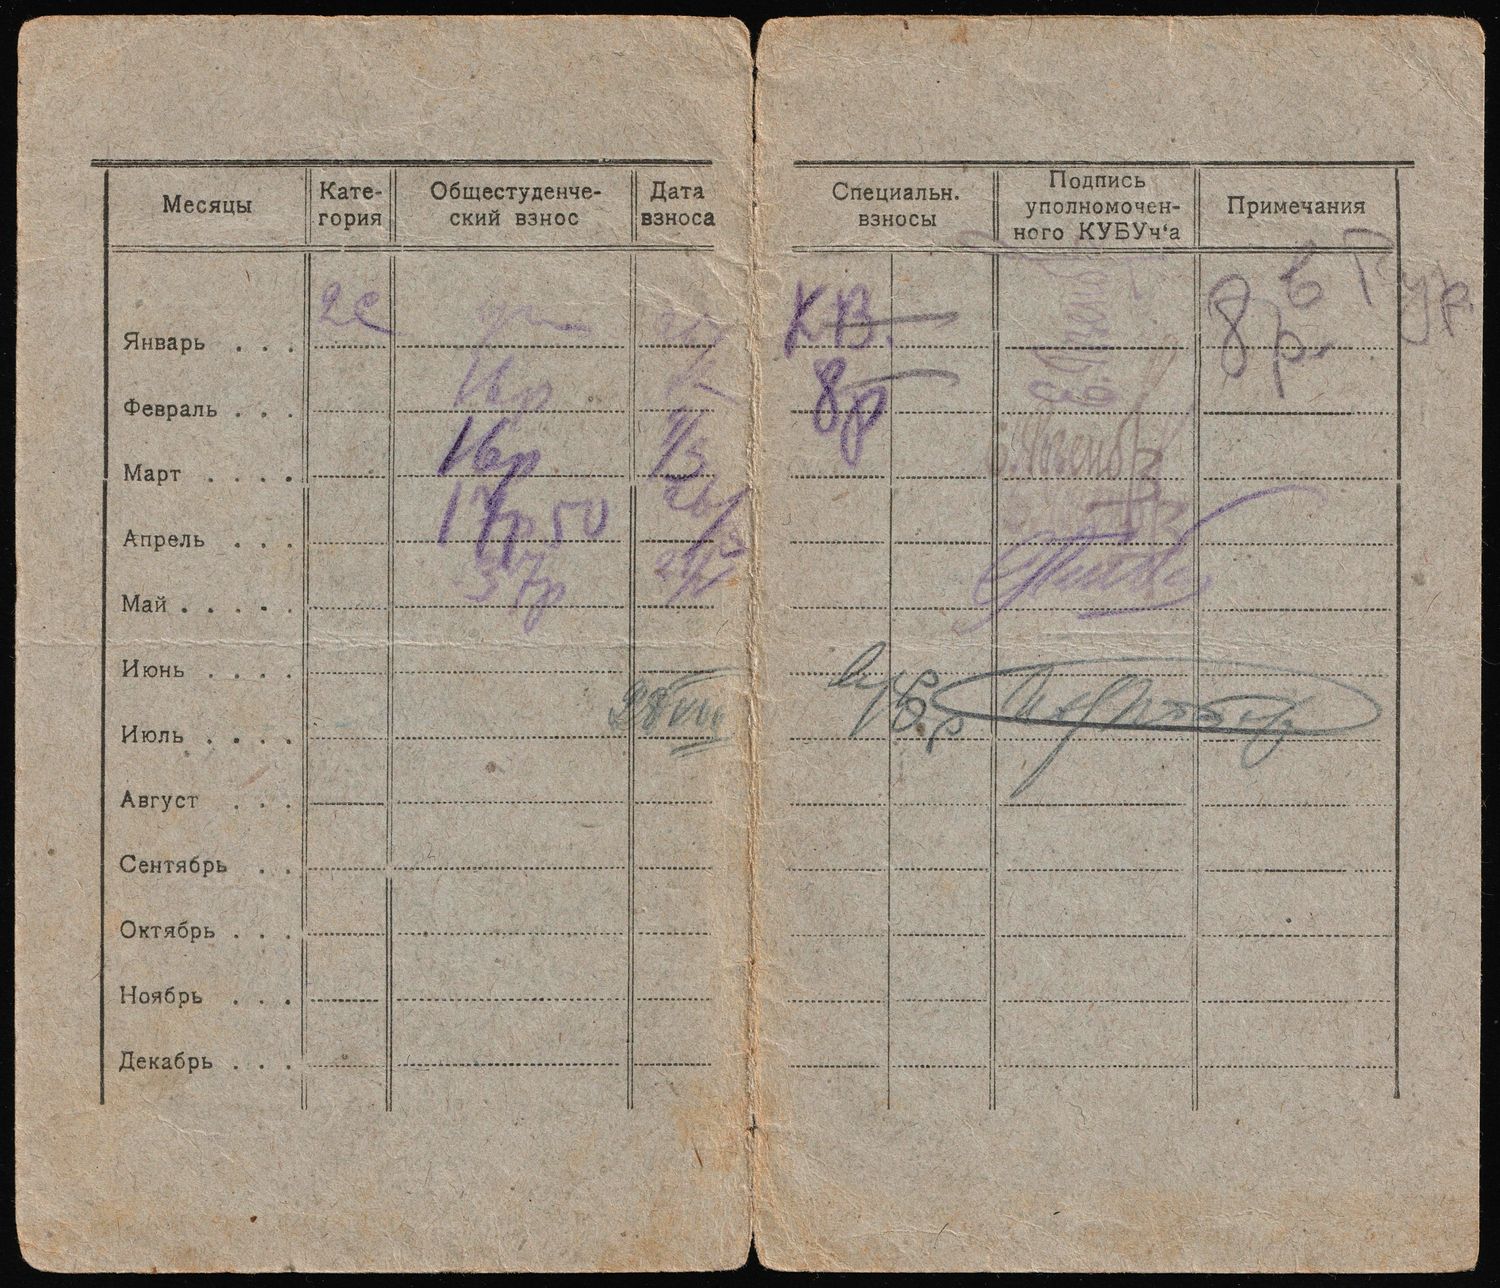 Месяцы
Кате-
гория
Общестуденче-
ский взнос
Дата
взноса
Специальн.
взносы
Подпись
уполномочен-
ного КУБУч‘а
Примечания
Январь . . . 2с КВ. 8р. в
Февраль . . . 16р 8р
Март . . . . 16р
Апрель . . . 17р50
Май . . . . . 37р
Июнь . . . .
Июль . . . . 28 VIII
Август . . .
Сентябрь . .
Октябрь . . .
Ноябрь . . .
Декабрь . . .